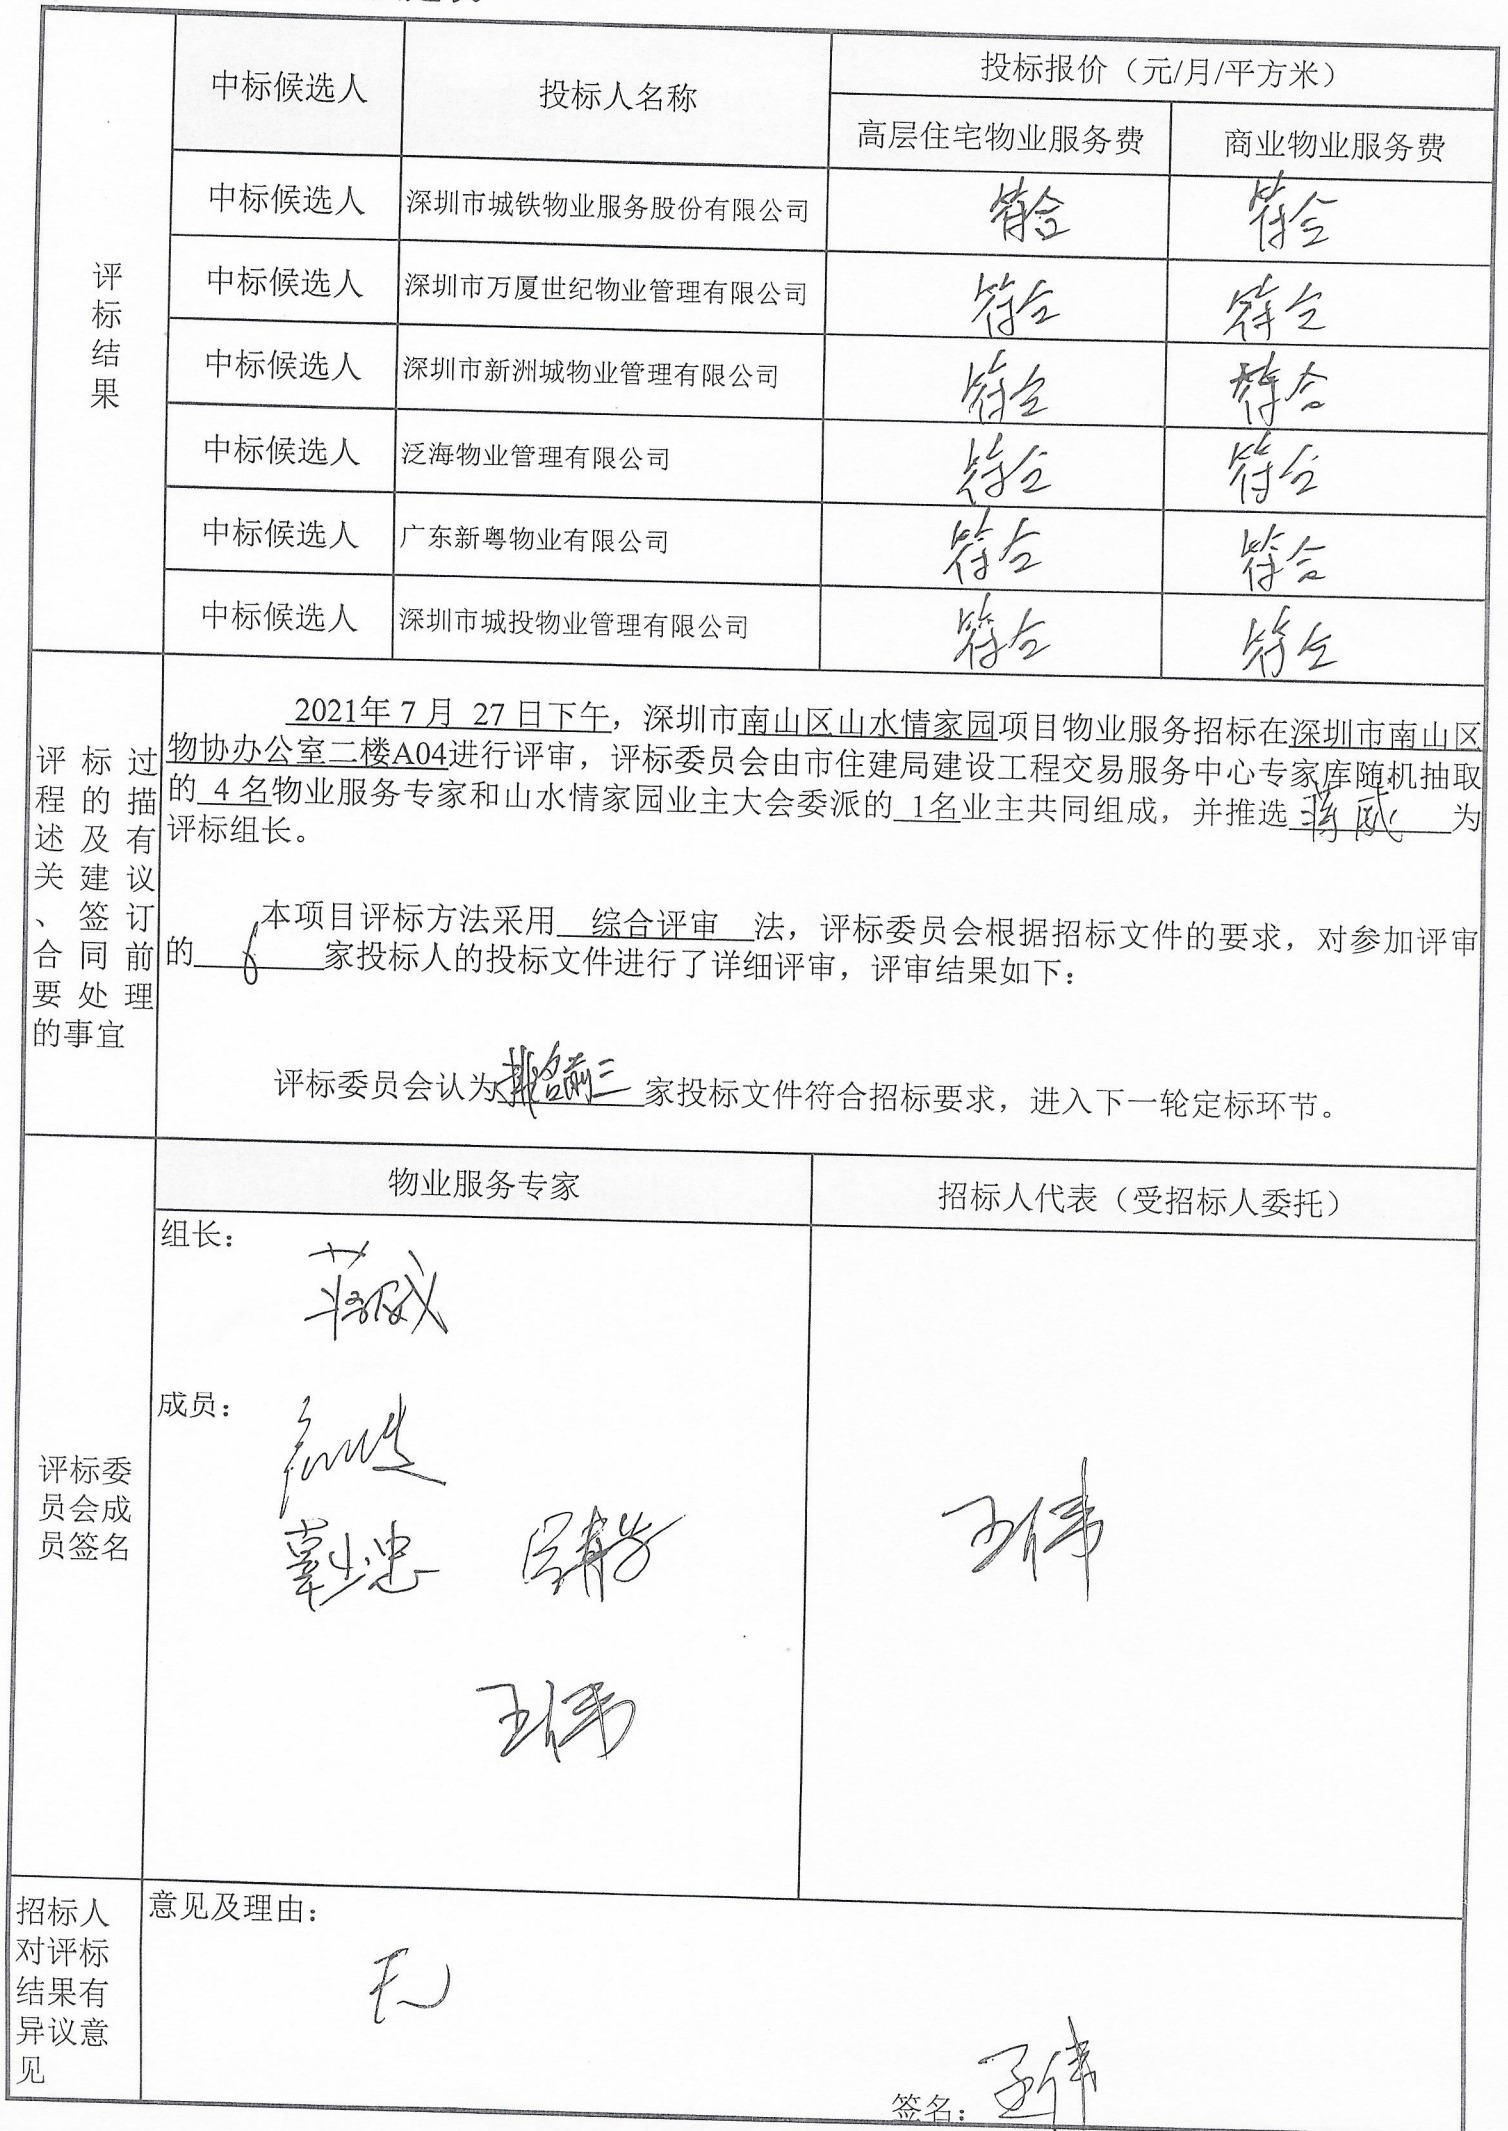 中标候选人
投标人名称
投标报价（元/月/平方米）
高层住宅物业服务费
商业物业服务费
评
标
结
果
中标候选人 深圳市城铁物业服务股份有限公司 符合 符合
中标候选人 深圳市万厦世纪物业管理有限公司 符合 符合
中标候选人 深圳市新洲城物业管理有限公司 符合 符合
中标候选人 泛海物业管理有限公司 符合 符合
中标候选人 广东新粤物业有限公司 符合 符合
中标候选人 深圳市城投物业管理有限公司 符合 符合
评标过
程的描
述及有
关建议
、签订
合同前
要处理
的事宜
2021年 7 月 27 日下午，深圳市南山区山水情家园项目物业服务招标在深圳市南山区
物协办公室二楼A04进行评审，评标委员会由市住建局建设工程交易服务中心专家库随机抽取
的 4 名物业服务专家和山水情家园业主大会委派的 1名业主共同组成，并推选 蒋威 为
评标组长。
本项目评标方法采用 综合评审 法，评标委员会根据招标文件的要求，对参加评审
的 家投标人的投标文件进行了详细评审，评审结果如下：
评标委员会认为排名前三家投标文件符合招标要求，进入下一轮定标环节。
评标委
员会成
员签名
物业服务专家
招标人代表（受招标人委托）
组长：
蒋威
成员：
王伟
王伟
招标人
对评标
结果有
异议意
见
意见及理由：
无
签名：